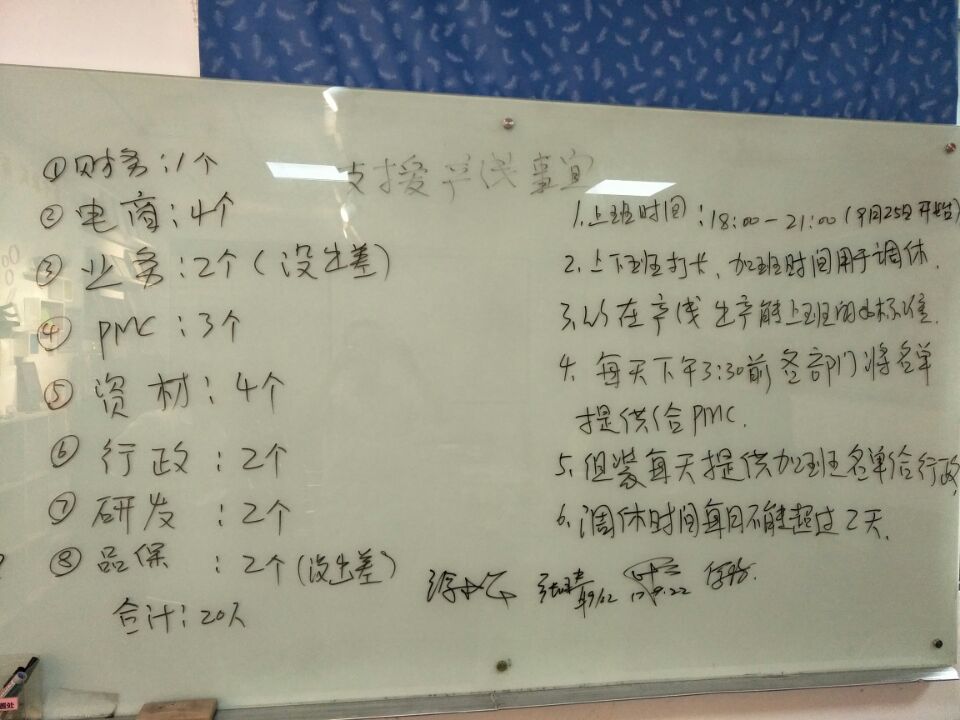 支援产线事宜
①财务:1个
②电商:4个
③业务:2个(没出差)
④PMC:3个
⑤资材:4个
⑥行政:2个
⑦研发:2个
⑧品保:2个(没出差)
合计:20人
1.上班时间:18:00-21:00(9月25日开始)
2.上下班打卡,加班时间用于调休.
3.以在产线生产能上班的为标准.
4.每天下午3:30前各部门将名单
提供给PMC.
5.组装每天提供加班名单给行政
6.调休时间每月不能超过2天.